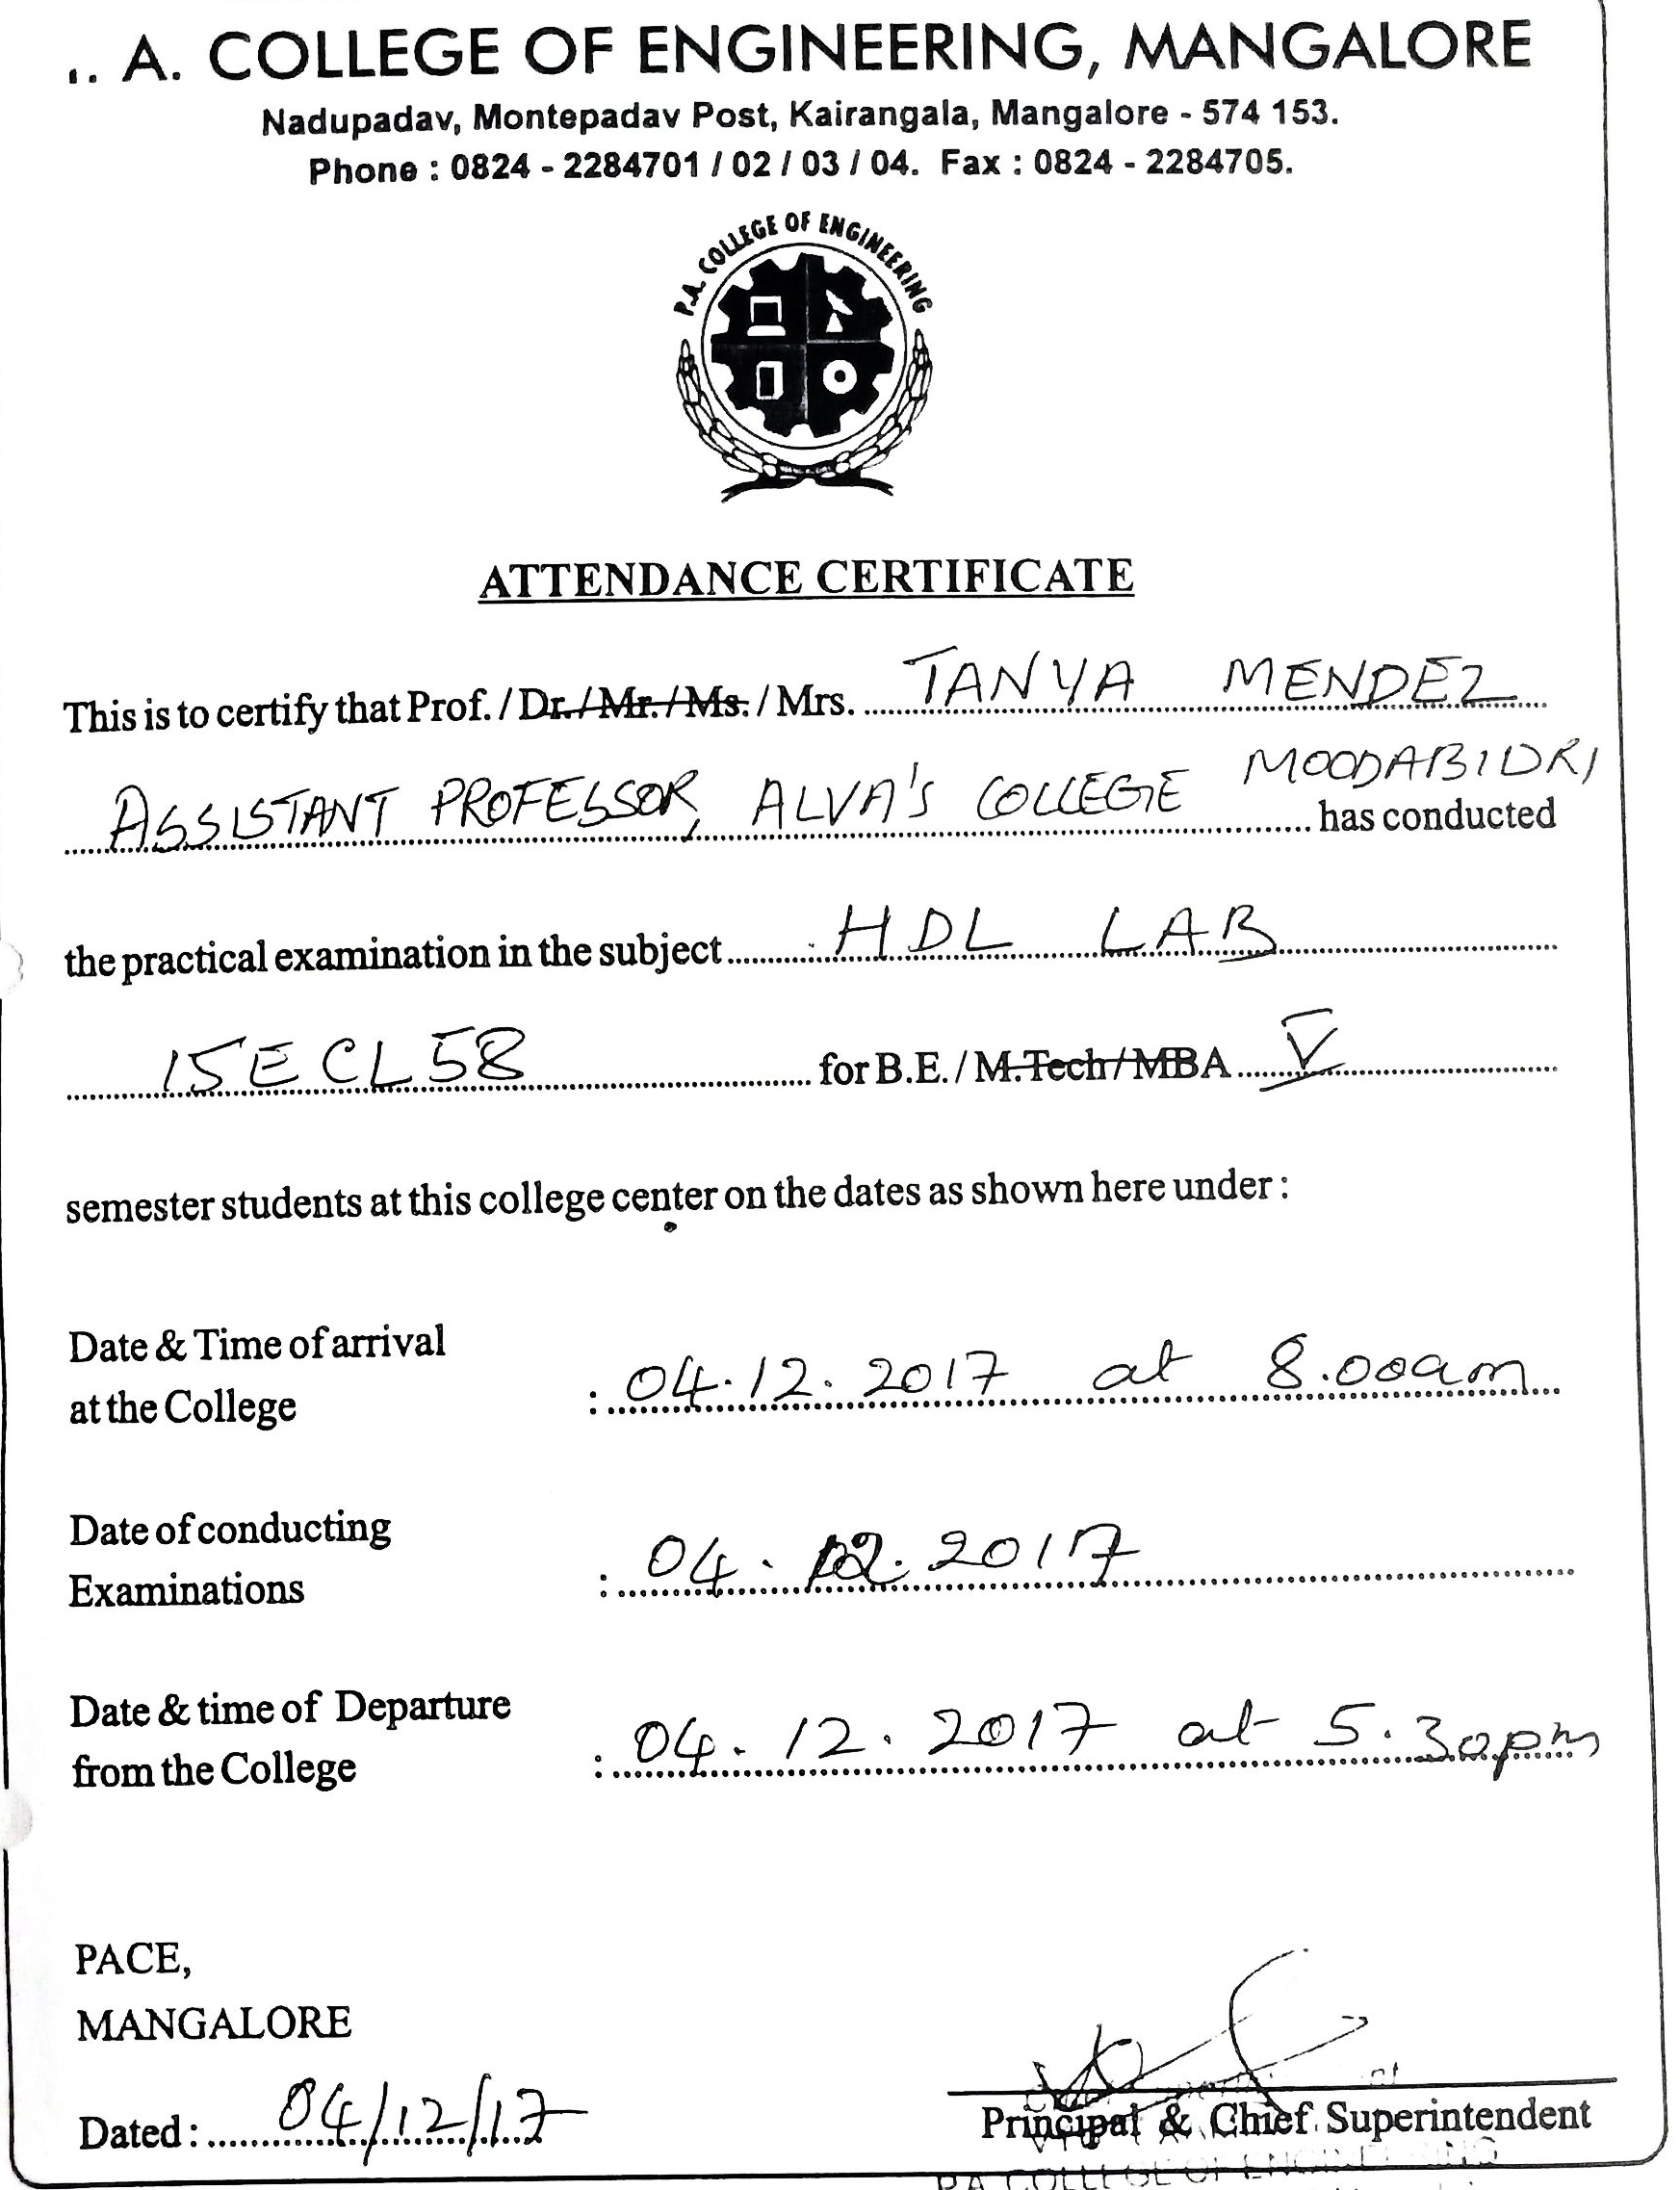 A. COLLEGE OF ENGINEERING, MANGALORE
Nadupadav, Montepadav Post, Kairangala, Mangalore - 574 153.
Phone : 0824 - 2284701 / 02 / 03 / 04. Fax : 0824 - 2284705.
P.A. COLLEGE OF ENGINEERING
ATTENDANCE CERTIFICATE
This is to certify that Prof. / Dr. / Mr. / Ms. / Mrs. TANYA MENDEZ
ASSISTANT PROFESSOR, ALVA'S COLLEGE MOODABIDRI has conducted
the practical examination in the subject HDL LAB
15ECL58 for B.E. / M.Tech / MBA V
semester students at this college center on the dates as shown here under :
Date & Time of arrival
at the College : 04.12.2017 at 8.00am
Date of conducting
Examinations : 04.12.2017
Date & time of Departure
from the College : 04.12.2017 at 5.30pm
PACE,
MANGALORE
Dated : 04/12/17
Principal & Chief Superintendent
P A COLLEGE OF ENGINEERING